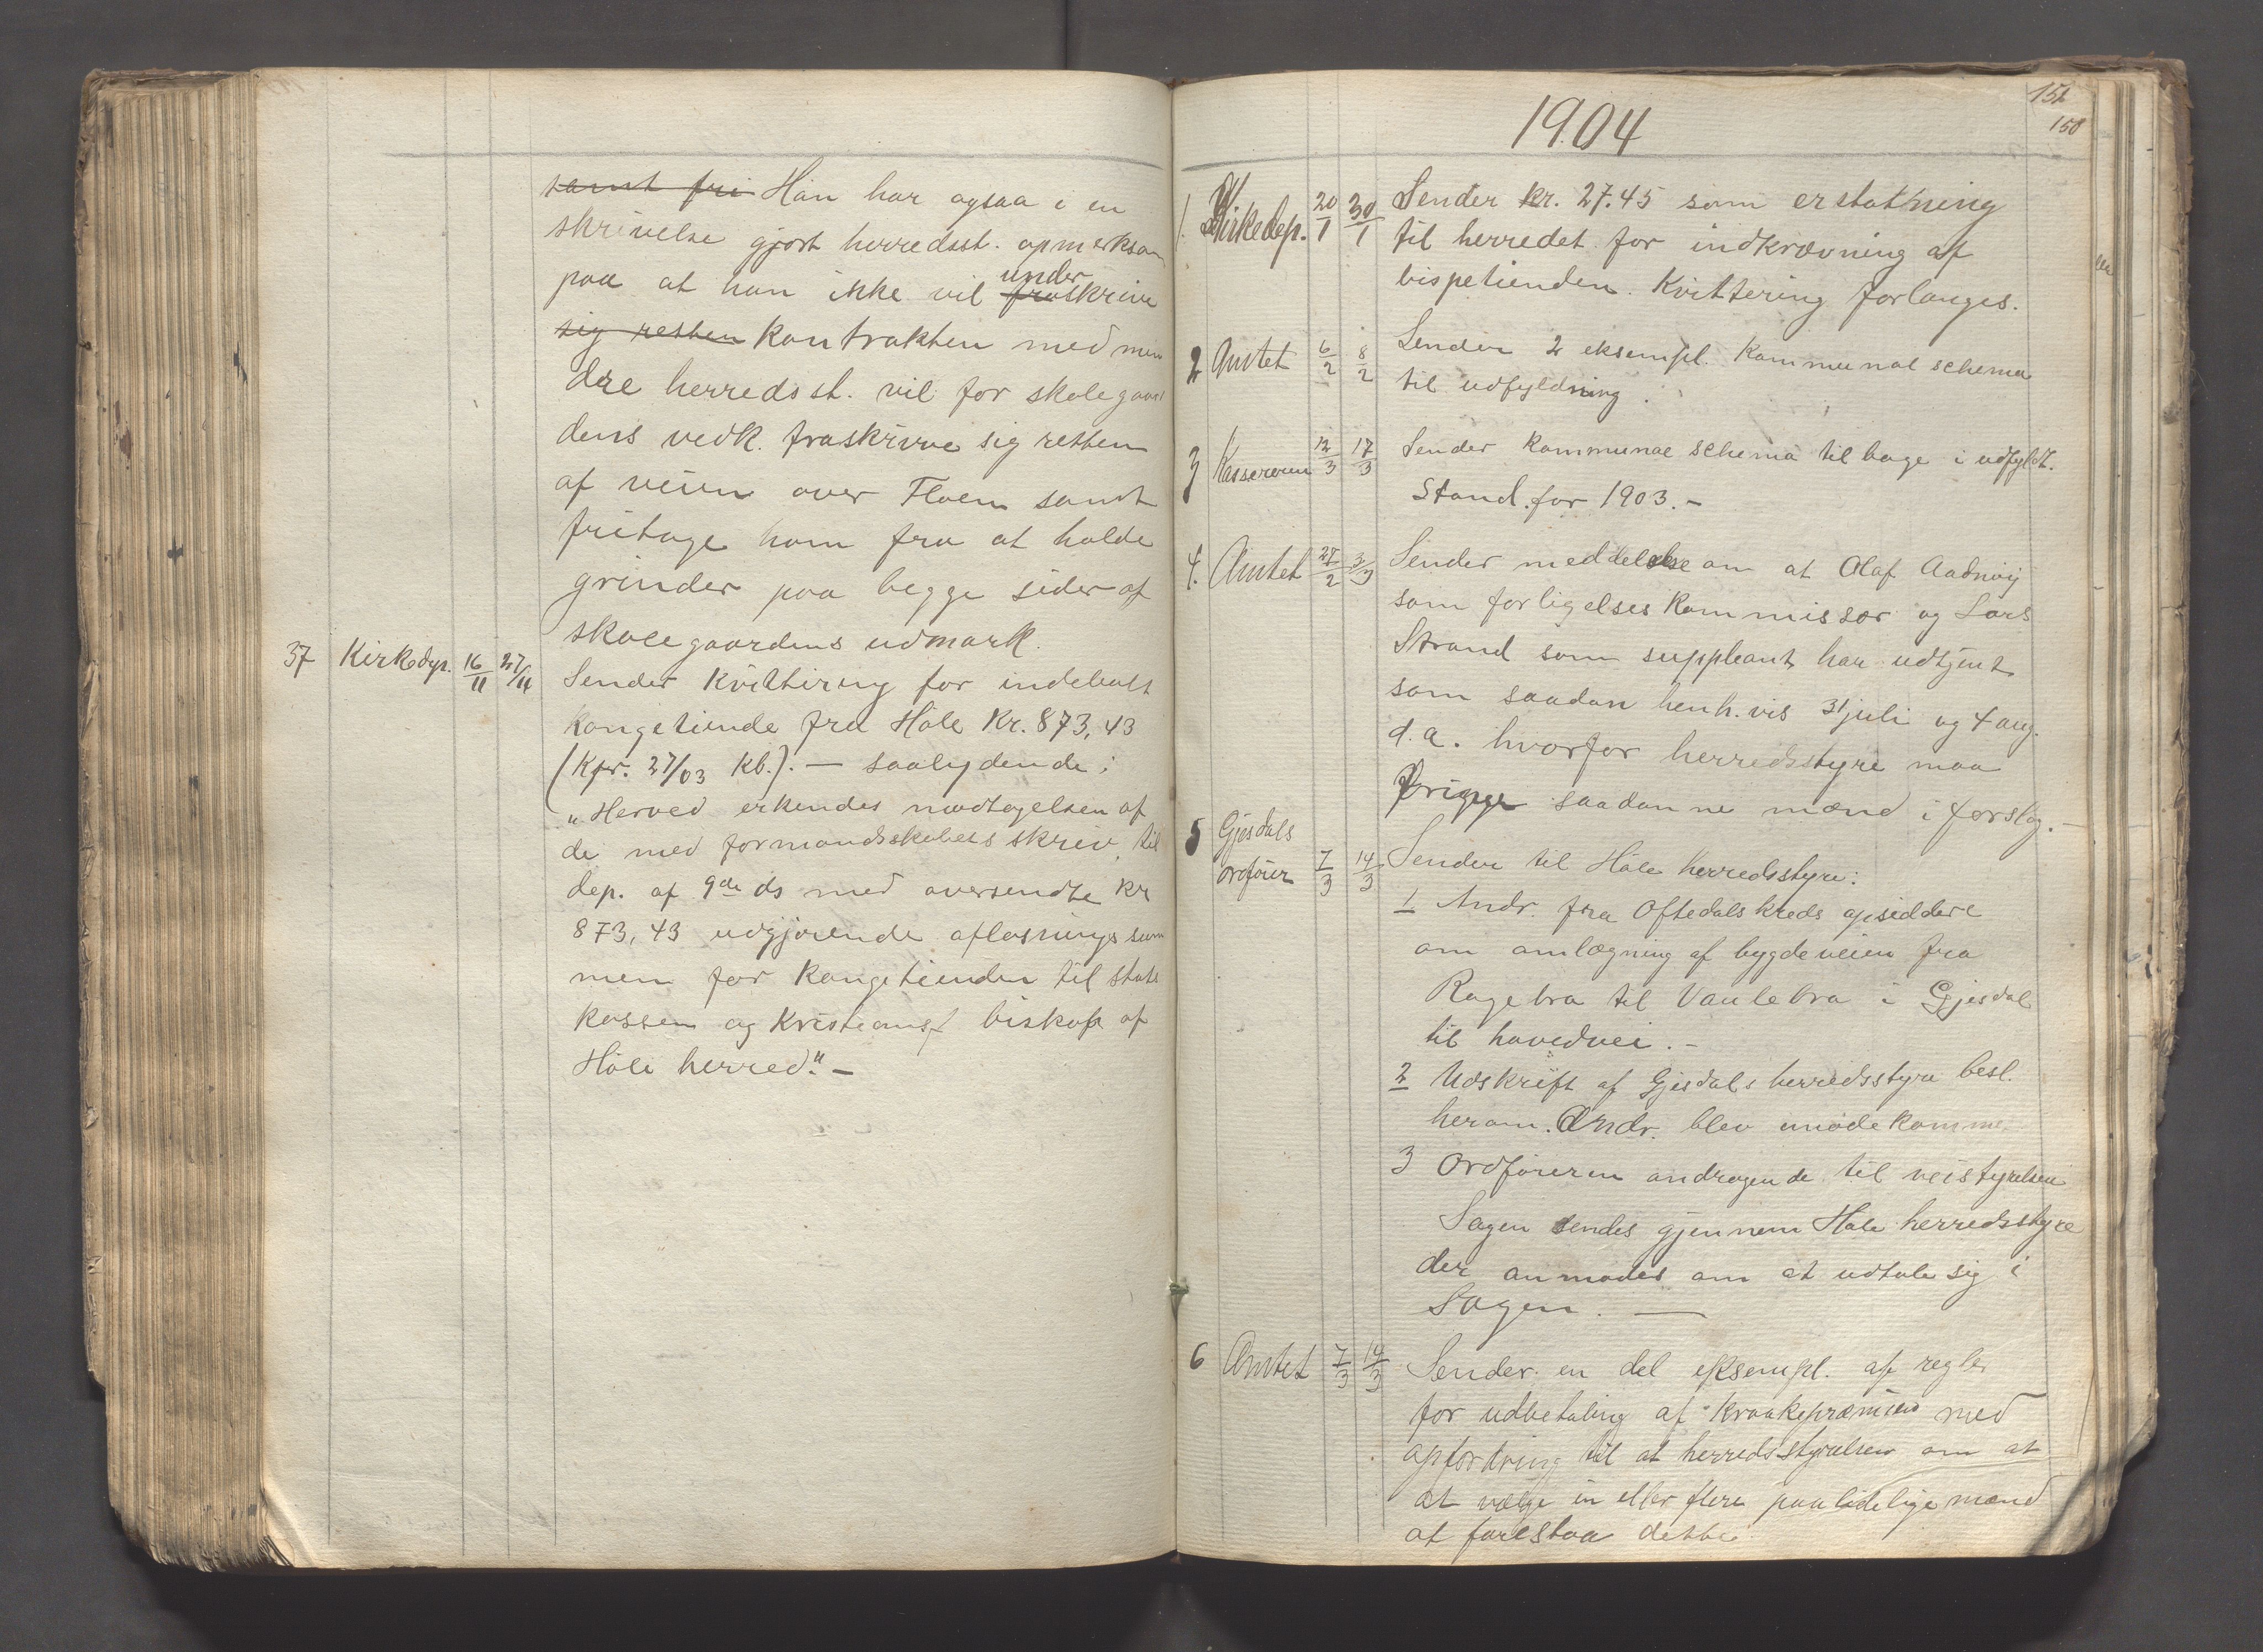 ~~samt fri~~ Han har ogsaa i en
skrivelse gjort herredsst. opmerksom
paa at han ikke vil ~~fra~~ under skrive
~~sig retten~~ kontrakten med min
dre herredsst. vil for skolegaar
dens vedk. fraskrive sig retten
af veien over Floen samt
fritage ham fra at holde
grinder paa begge sider af
skolegaardens udmark.
37 Kirkedep. 16/11 27/11 Sender kvittering for indebalt
kongetiende fra Høle Kr. 873,43
(Kpr. 27/03 Kb.). — saalydende:
„Herved erkendes modtagelsen af
de med formandsskabets skriv. til
dep. af 9de ds med oversendte kr
873,43 udgjørende afløsningssum
men for kongetienden til stats
kassen og Kristiansf biskop af
Høle herred." —
151
150
1904
1. Kirkedep. 20/1 30/1 Sender kr. 27.45 som erstatning
til herredet for indkrævning af
bispetienden. Kvittering forlanges.
2 Amtet 6/2 8/2 Sender 2 eksempl. kommunal schema
til udfyldning.
3 Kassereren 12/3 17/3 Sender kommunal schema tilbage i udfyldt.
Stand. for 1903. -
4. Amtet 27/2 3/3 Sender meddelelse om at Olaf Aadnøy
som forligelseskommissær og Lars
Strand som suppleant har udtjent
som saadan henh. vis 31 juli og 4 aug.
d.a. hvorfor herredsstyre maa
bringe saadanne mænd i forslag. —
5 Gjesdals
ordfører 7/3 14/3 Sender til Høle herredsstyre:
1 Andr. fra Oftedals kreds opsiddere
om omlægning af bygdeveien fra
Ragebra til Vaulebra i Gjesdal
til hovedvei. -
2 Udskrift af Gjesdals herredsstyre besl.
herom. Andr. blev imødekomme
3 Ordføreren andragende til veistyrelsen
Sagen sendes gjennem Høle herredsstyre
der anmodes om at udtale sig i
Sagen. —
6 Amtet 7/3 14/3 Sender en del eksempl. af regler
for udbetaling af kraakepræmien med
opfordring til at herredsstyrelsen om at
at vælge en eller flere paalidelige mænd
at forestaa dette